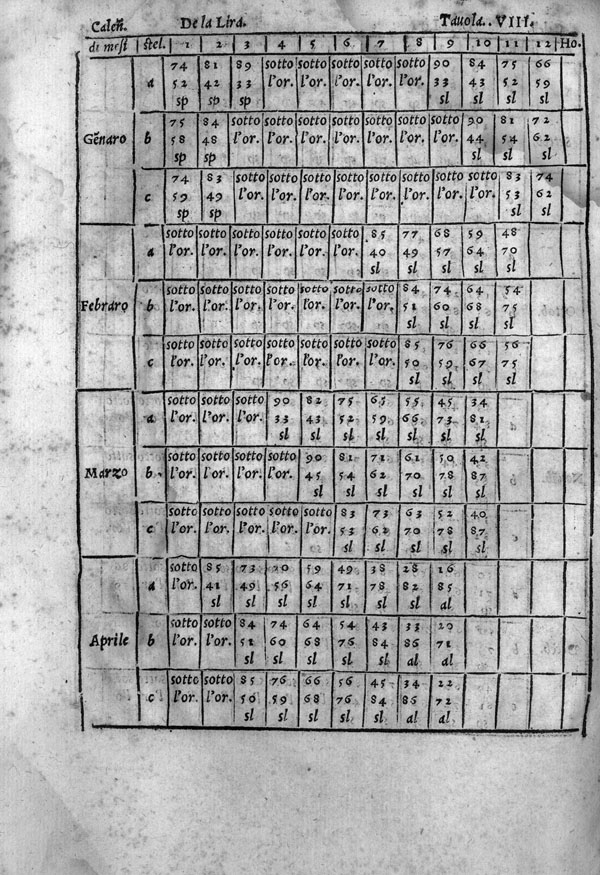 Caleñ. De la Lira. Tauola. VIII.
di mesi stel. 1 2 3 4 5 6 7 8 9 10 11 12 Ho.
74 81 89 sotto sotto sotto sotto sotto 90 84 75 66
a 52 42 33 l'or. l'or. l'or. l'or. l'or. 33 43 52 59
sp sp sp sl sl sl sl
75 84 sotto sotto sotto sotto sotto sotto sotto 90 81 72
Gẽnaro b 58 48 l'or. l'or. l'or. l'or. l'or. l'or. l'or. 44 54 62
sp sp sl sl sl
74 83 sotto sotto sotto sotto sotto sotto sotto sotto 83 74
c 59 49 l'or. l'or. l'or. l'or. l'or. l'or. l'or. l'or. 53 62
sp sp sl sl
sotto sotto sotto sotto sotto sotto 85 77 68 59 48
a l'or. l'or. l'or. l'or. l'or. l'or. 40 49 57 64 70
sl sl sl sl sl
sotto sotto sotto sotto sotto sotto sotto 84 74 64 54
Febraro b l'or. l'or. l'or. l'or. l'or. l'or. l'or. 51 60 68 75
sl sl sl sl
sotto sotto sotto sotto sotto sotto sotto 85 76 66 56
c l'or. l'or. l'or. l'or. l'or. l'or. l'or. 50 59 67 75
sl sl sl sl
sotto sotto sotto 90 82 75 65 55 45 34
a l'or. l'or. l'or. 33 43 52 59 66 73 81
sl sl sl sl sl sl sl
sotto sotto sotto sotto 90 81 71 61 50 42
Marzo b l'or. l'or. l'or. l'or. 45 54 62 70 78 87
sl sl sl sl sl sl
sotto sotto sotto sotto sotto 83 73 63 52 40
c l'or. l'or. l'or. l'or. l'or. 53 62 70 78 87
sl sl sl sl sl
sotto 85 73 59 49 38 28 16
a l'or. 41 49 56 64 71 78 82 85
sl sl sl sl sl sl sl al
sotto sotto 84 74 64 54 43 33
Aprile b l'or. l'or. 51 60 68 76 84 86 71
sl sl sl sl sl al al
sotto sotto 85 76 66 56 45 34 22
c l'or. l'or. 50 59 68 76 84 86 72
sl sl sl sl sl al al